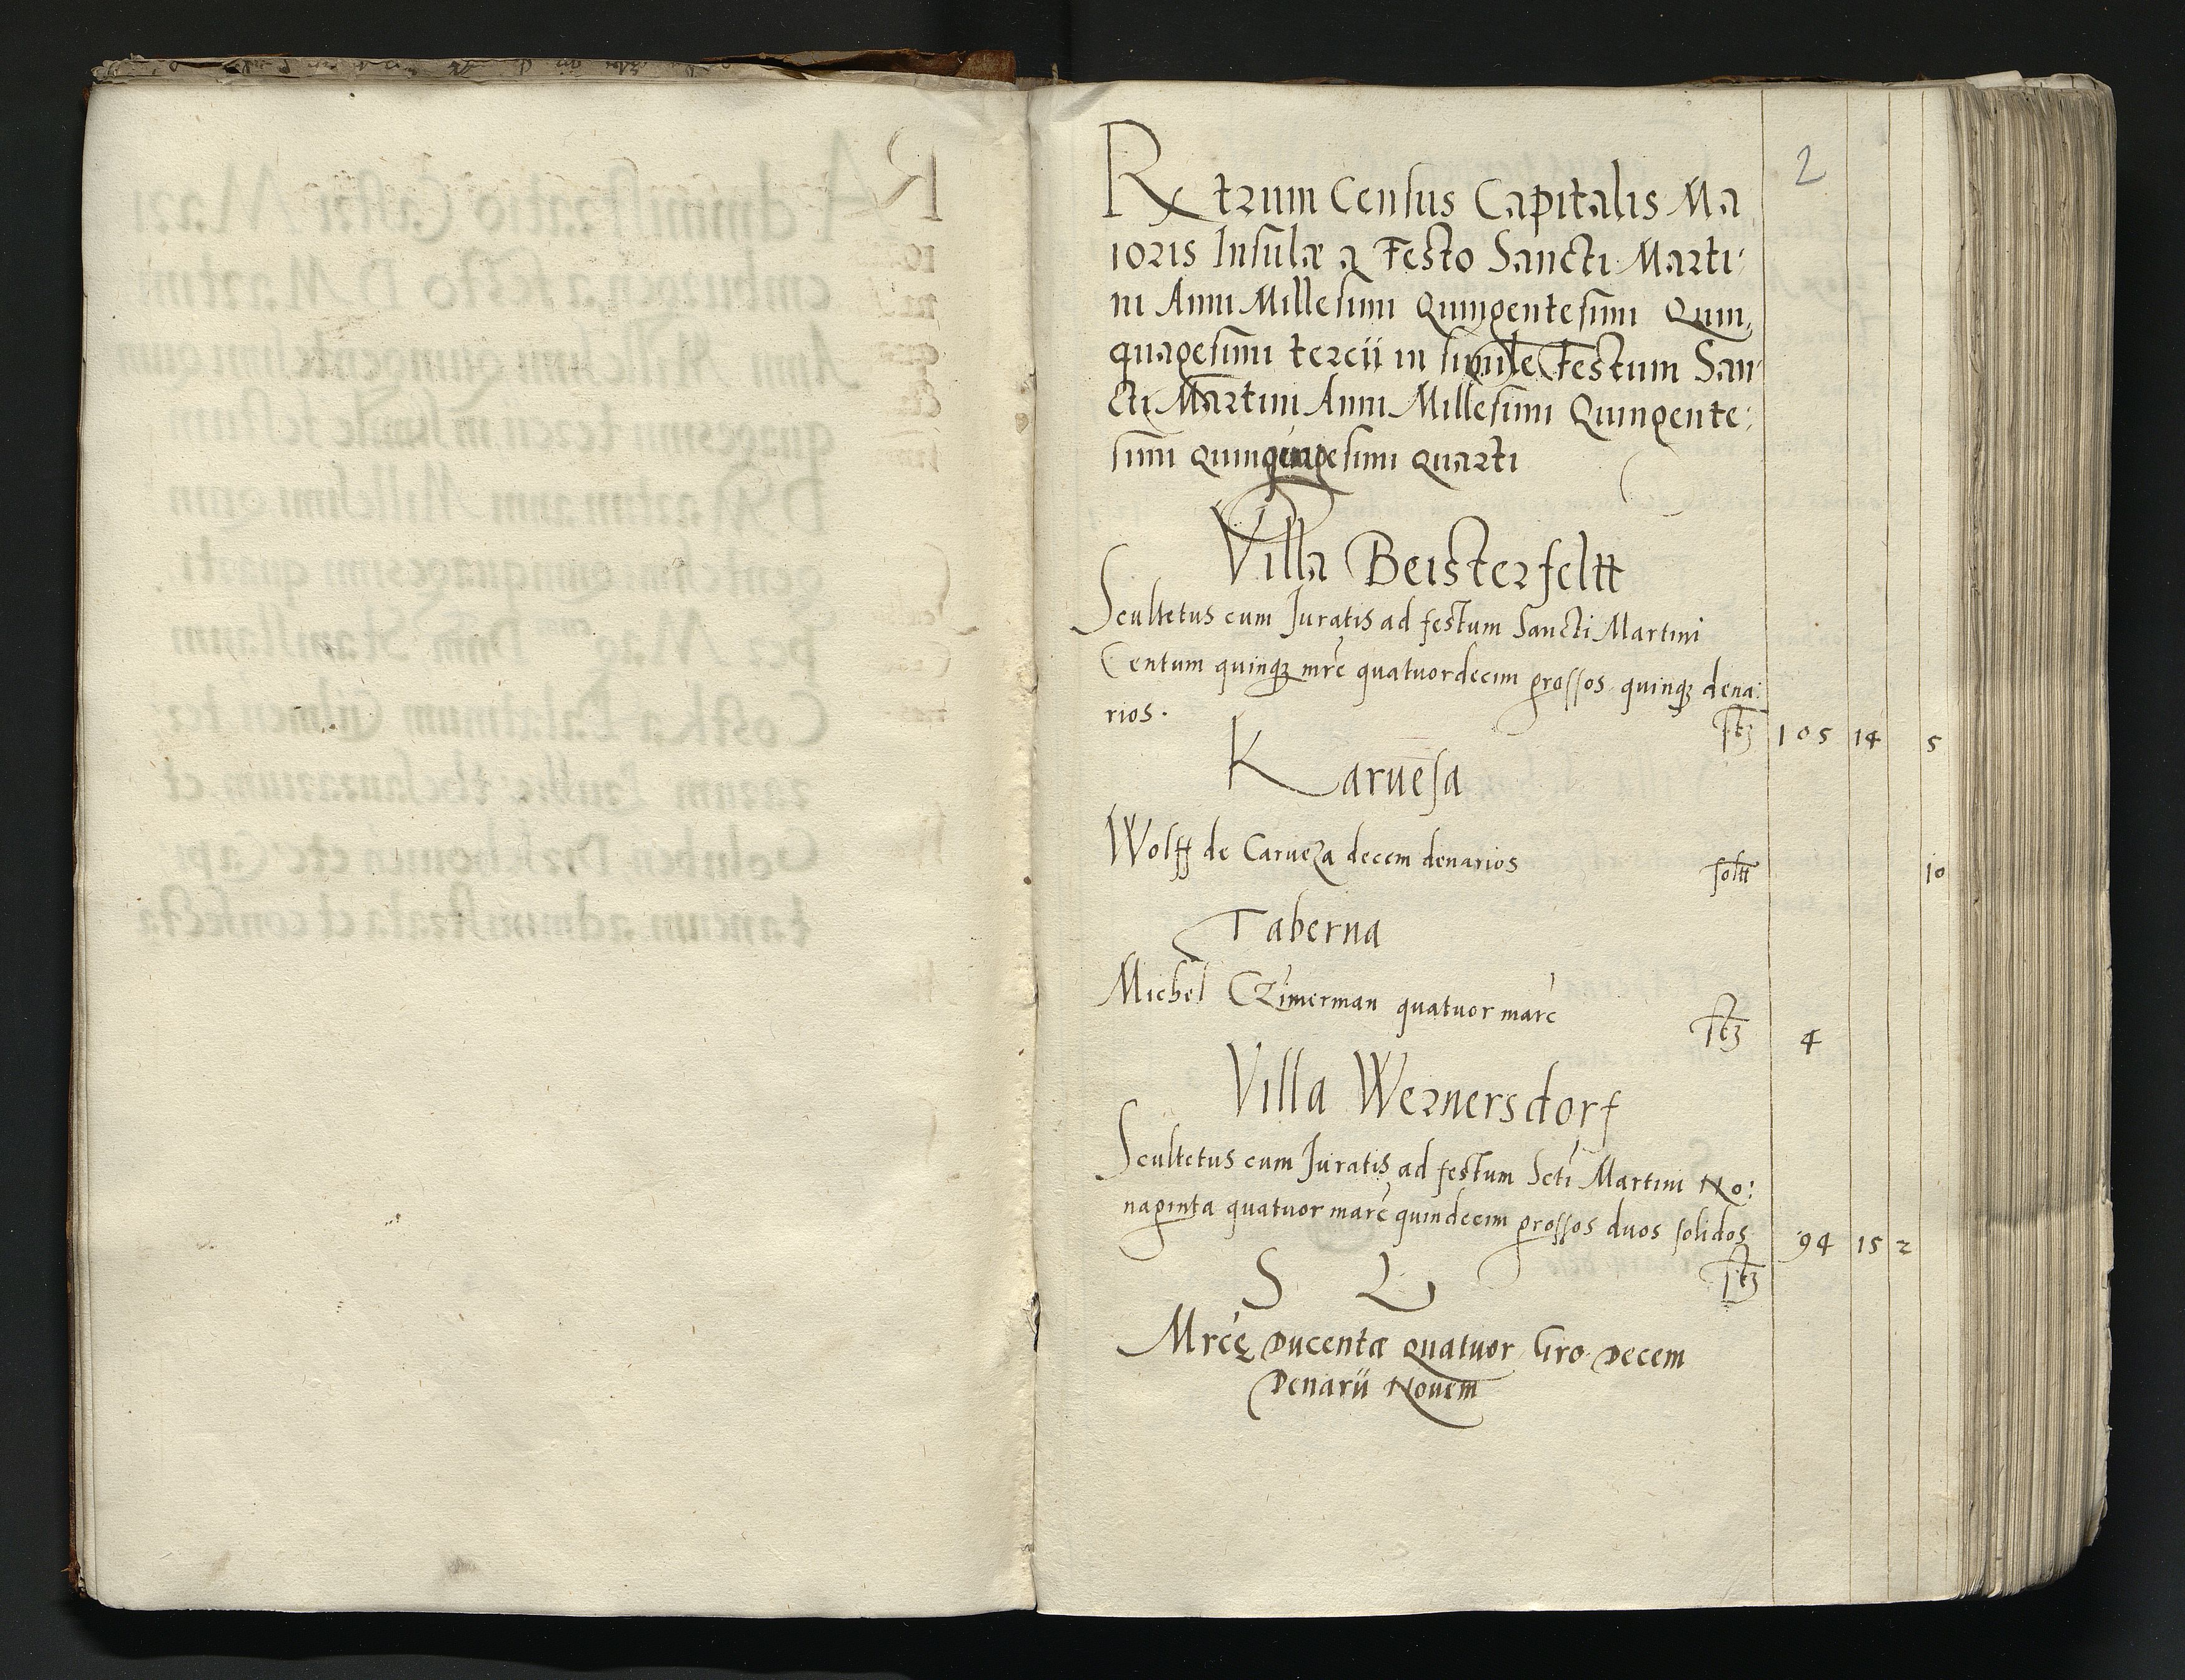 2
Rxtrum Census Capitalis Ma
ioris Insulæ a Festo Sancti Marti:
ni Anni Millesimi Quingentesimi Quin,
quagesimi tercii in simile Festum San
cti Martini Anni Millesimi Quingente:
simi Quinquagesimi Quarti
Villa Beisterfeltt
Scultetus cum Juratis ad festum Sancti Martini
Centum quinqȝ mrc quatuordecim grossos quinqȝ dena:
rios. 105 14 5
Karuesa
Wolff de Carueza decem denarios soltt 10
Taberna
Michel Czimerman quatuor marc 4
Villa Wernersdorf
Scultetus cum Juratis ad festum Scti Martini No:
naginta quatuor marc quindecim grossos duos solidos 94 15 2
S L
Mrcę Ducentæ Quatuor Gro Decem
Denarii Nouem